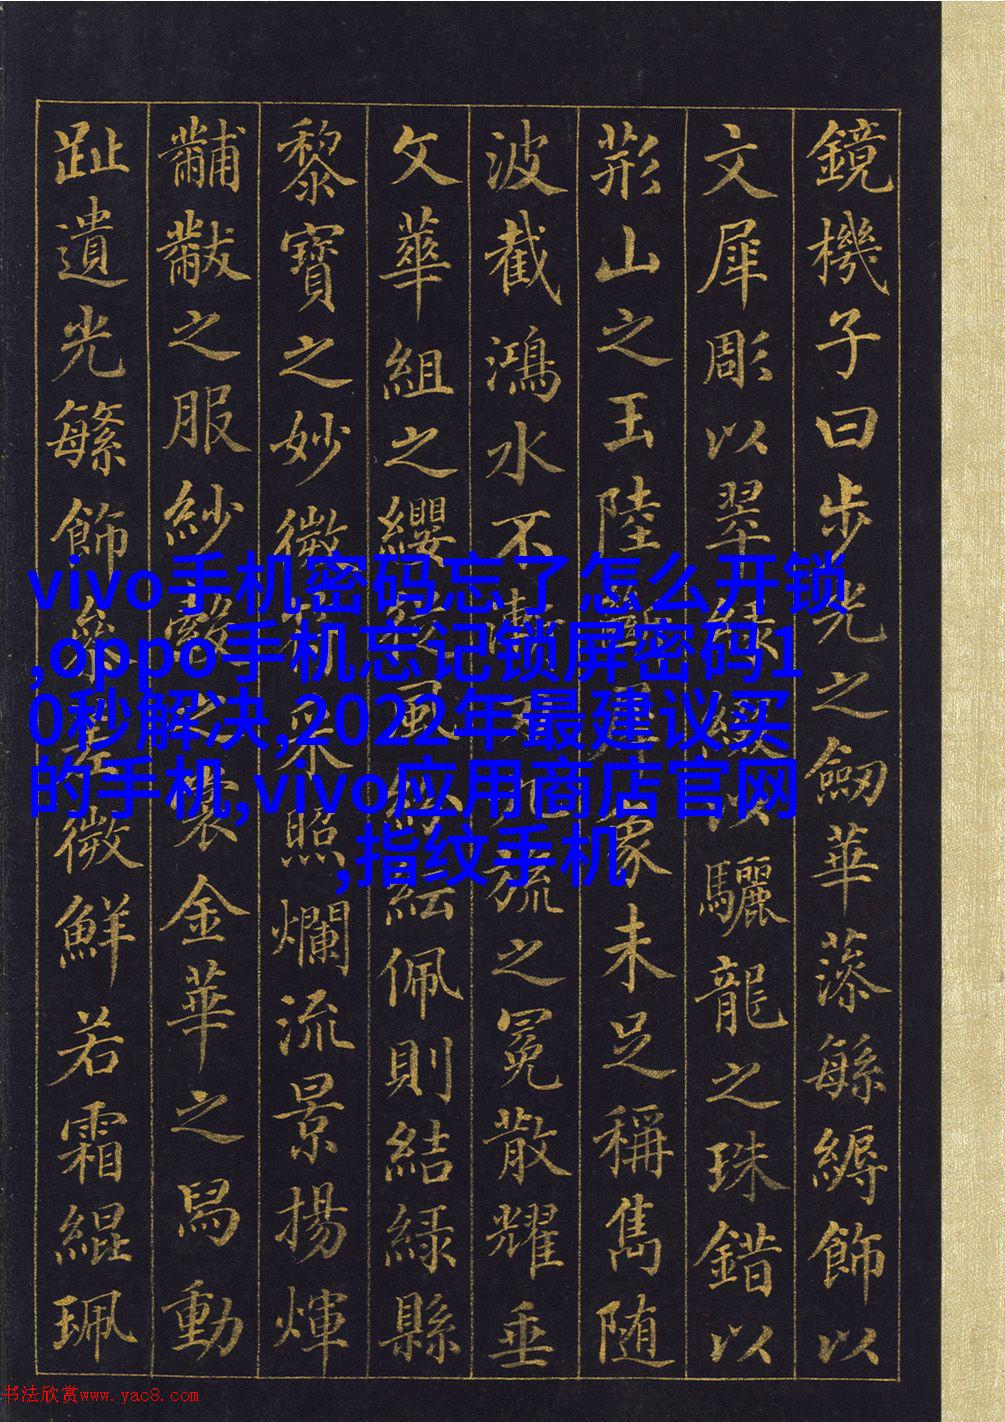 鏡機子曰步光之劒華藻緐縟飾以
文犀彫以翠綠綴以驪龍之珠錯以
荊山之玉陸斷犀象未足稱雋随
波截鴻水不漸刃九旒之冕散耀垂
文華組之纓從風紛紜佩則結綠縣
黎寶之妙微符采照爛流景揚煇
黼黻之服紗縠之裳金華之舄動
趾遺光繁飾參差微鮮若霜緄珮
vivo手机密码忘了怎么开锁
,oppo手机忘记锁屏密码1
0秒解决,2022年最建议买
的手机,vivo应用商店官网
,指纹手机
书法欣赏www.yac8.com